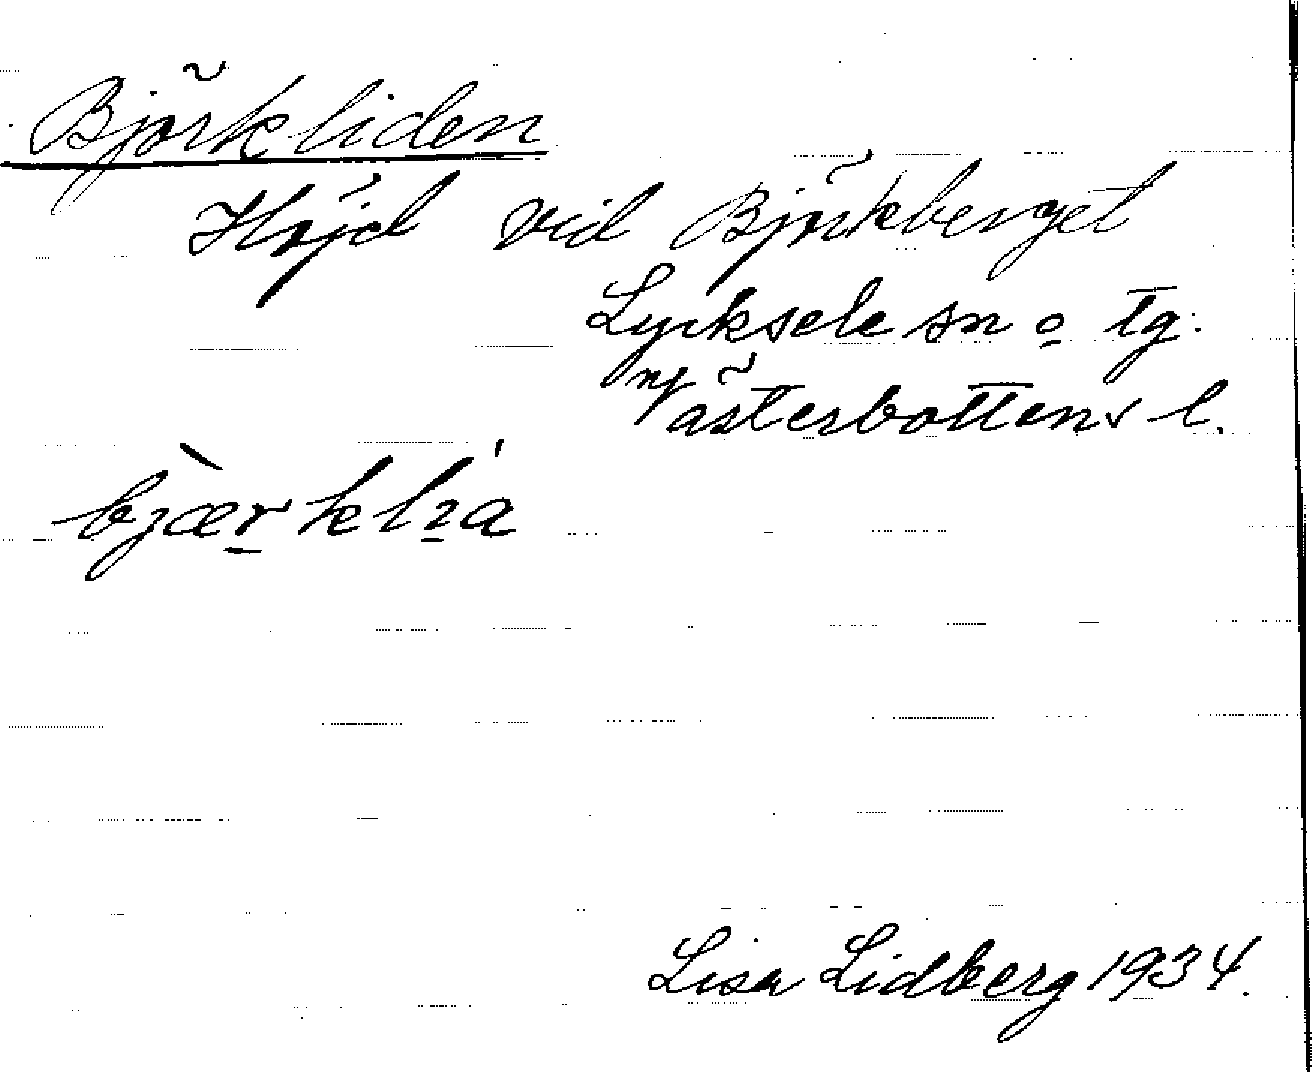 Björkliden
Höjd vid Björkberget
Lycksele sn o tg.
Västerbottens l.
bjær̲kl̀ı̲a
Lisa Lidberg 1934.